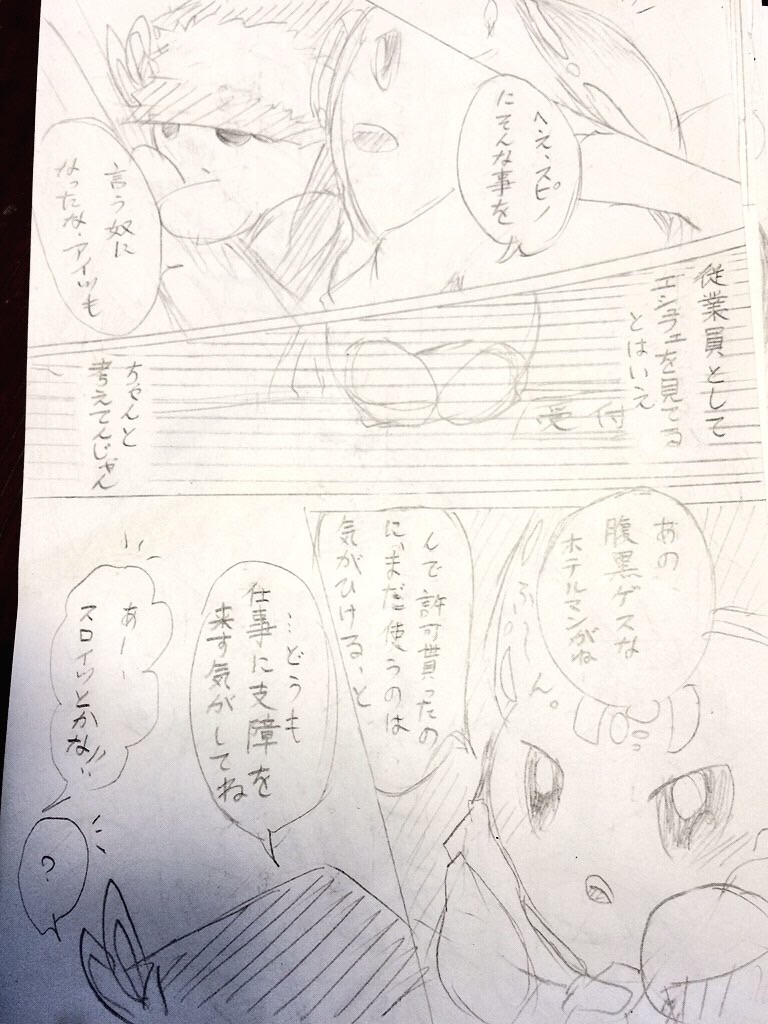 へえ、スピノ
にそんな事を
言う奴に
なったな、アイツも
従業員として
エシラェを見てる
とはいえ
受付
ちゃんと
考えてんじゃん
あの
腹黒ゲスな
ホテルマンがね
ふーーん。
んで許可貰ったの
に、まだ使うのは
気がひける、と
…どうも
仕事に支障を
来す気がしてね
あー、
スロイツとかな!!
?